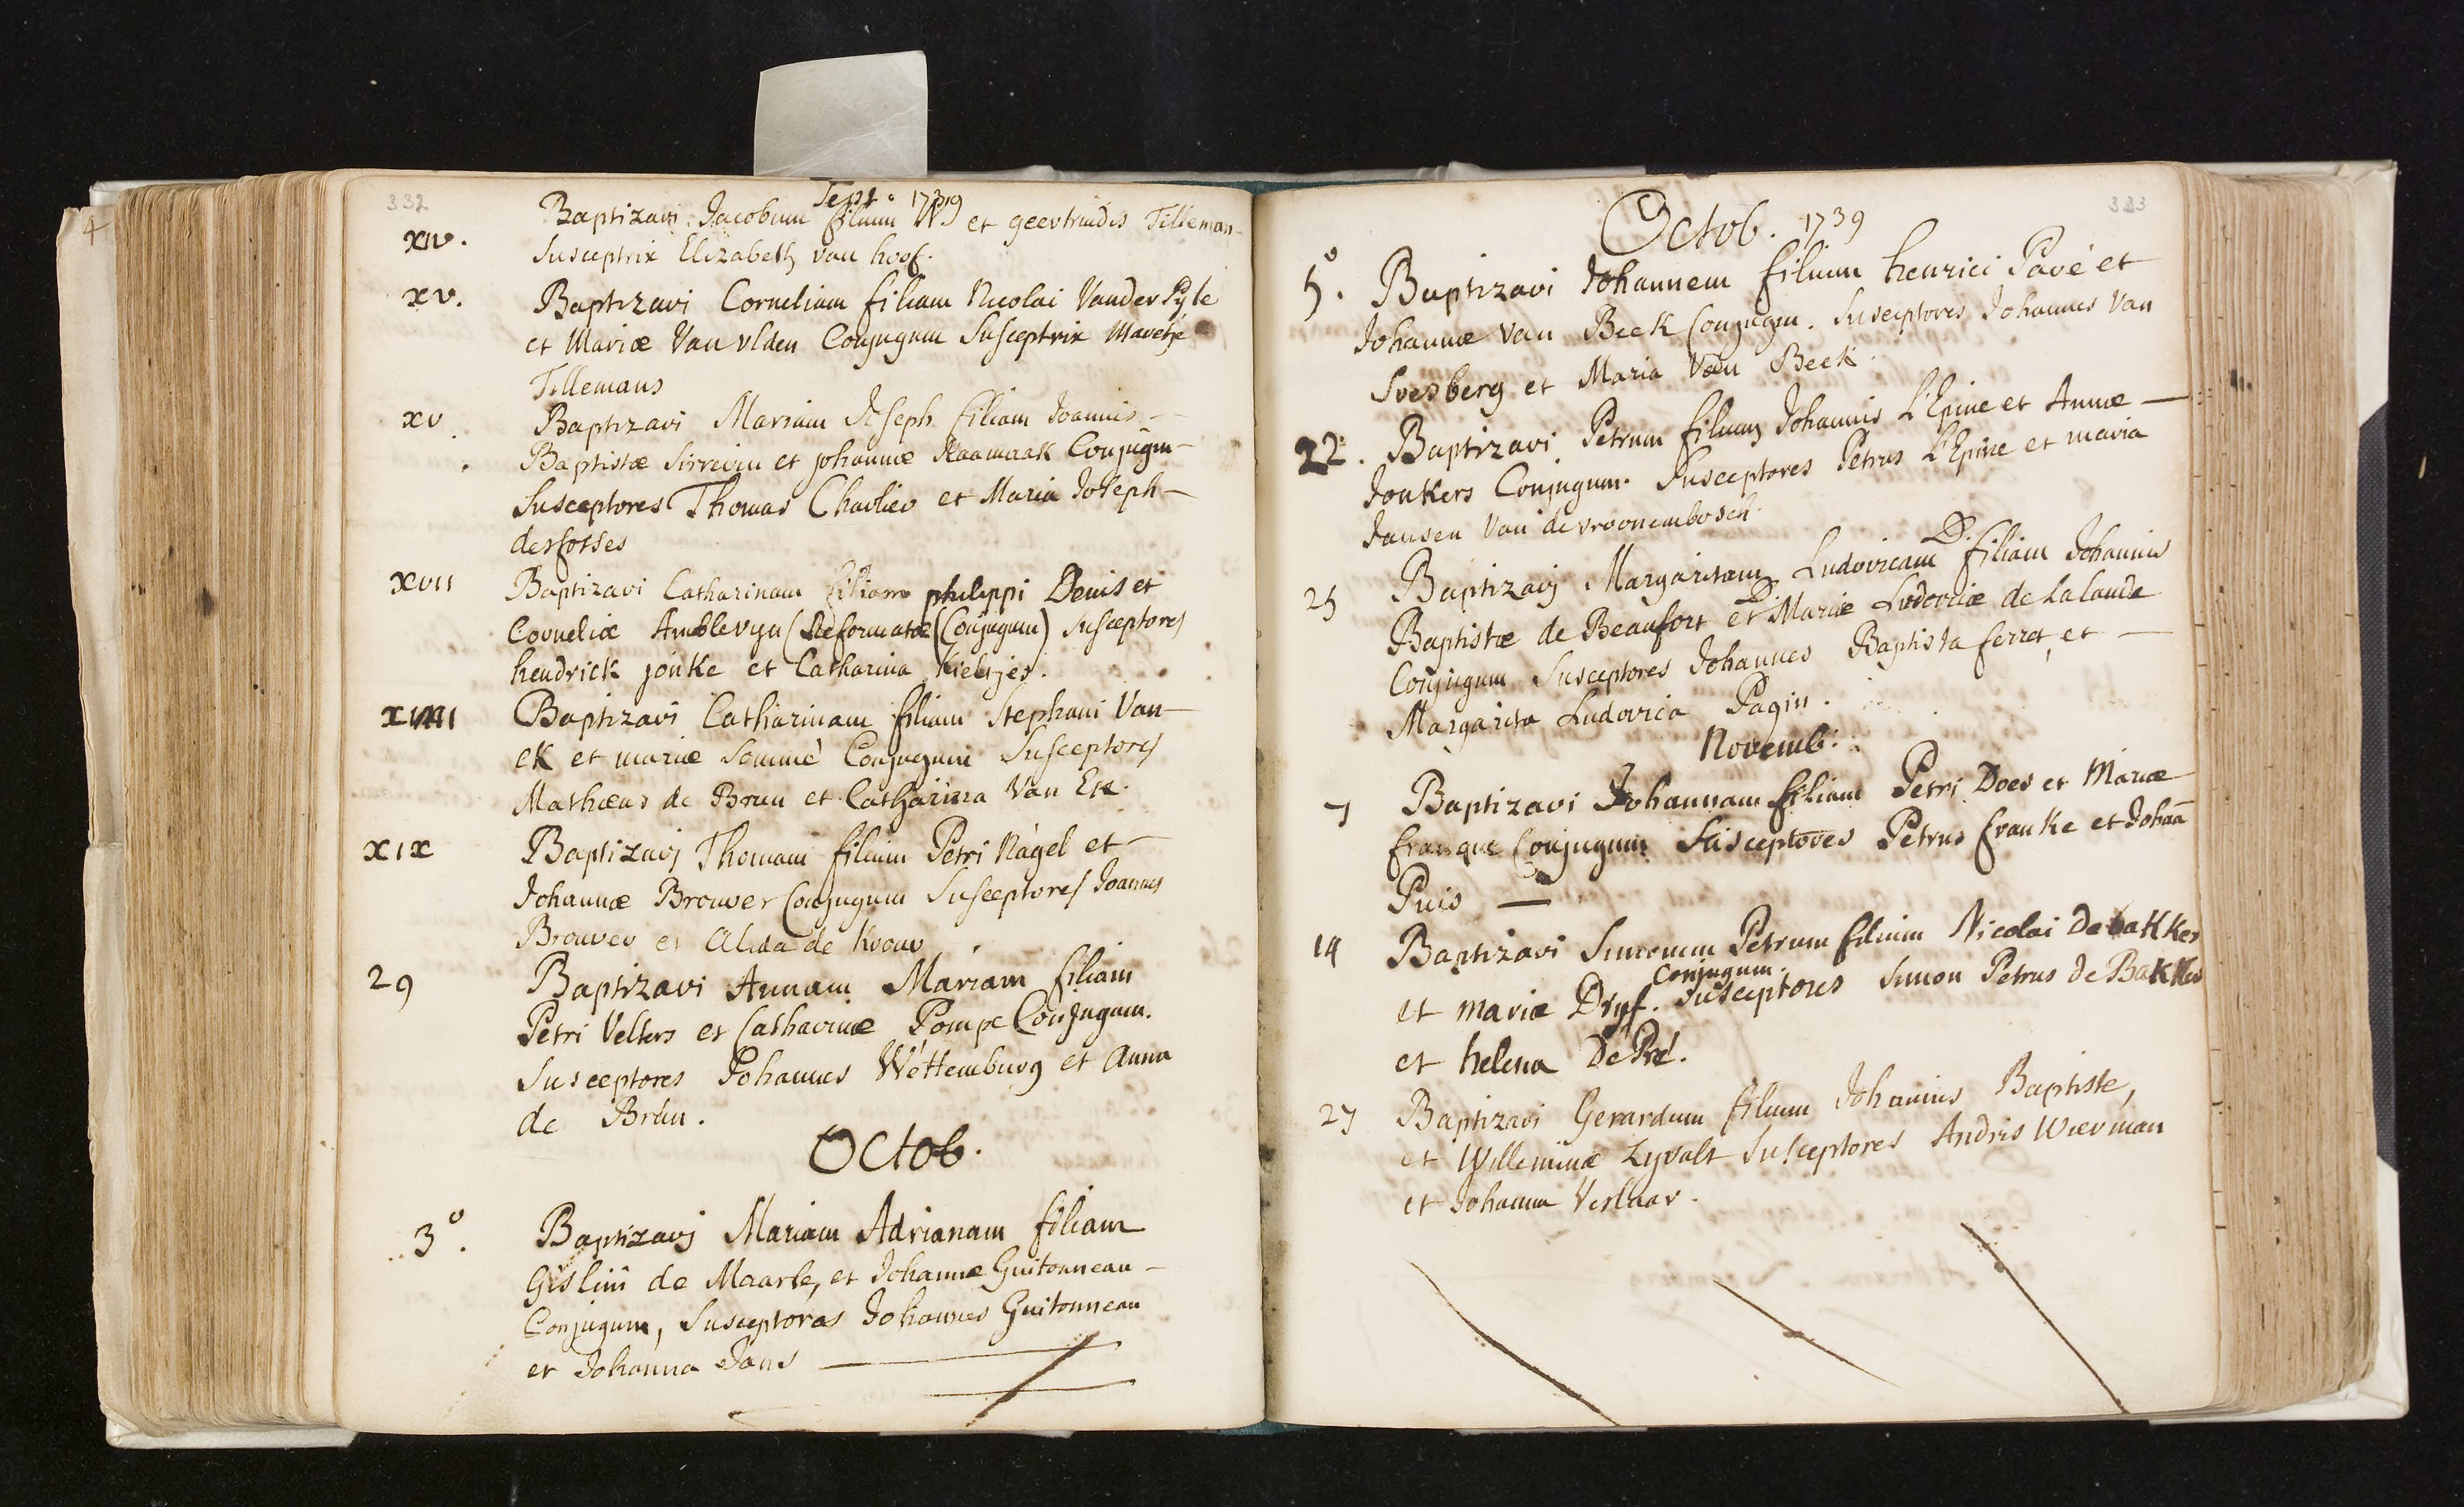 332
Sept. 1739
XIV. Baptizavi Jacobum filium N et geertrudis Tilleman
Susceptrix Elizabeth van hoof.
XV. Baptizavi Corneliam filiam Nicolai Vander Pyle
et Mariæ Van Vlden Conjugum Susceptrix Maretje
Tillemans
XV Baptizavi Mariam Joseph filiam Joannis
Baptistæ Sirrevin et johannæ Raamaak Conjugum
Susceptores Thomas Charlier et Maria Joseph
desfosses
XVII Baptizavi Catharinam filiam philippi Denis et
Corneliæ Amblevyn (Reformatæ (Conjugum) Susceptores
hendrick jonke et Catharina Kieltjes.
Baptizavi Catharinam filiam Stephani Van
ek et mariæ Sommé Conjugum Susceptores
Mathæus de Brun et Catharina Van Ek.
XIX Baptizavi Thomam filium Petri Nagel et
Johannæ Brouwer Conjugum Susceptores Joannes
Brouwer et Alida de Kroon
29 Baptizavi Annam Mariam filiam
Petri Velters et Catharinæ Pompe Conjugum.
Susceptores Johannes Wettemburg et Anna
de Brún.
Octob.
3o. Baptizavj Mariam Adrianam filiam
Gislini de Maarle, et Johannæ Guitonneau
Conjugum, Susceptores Johannes Guitonneau
et Johanna Jans
333
Octob. 1739
5o. Baptizavi Johannem filium henrici Pavé et
Johannæ Van Beek Conjugum. Susceptores Johannes Van
Sresberg et Maria Van Beek.
22. Baptizavi Petrum filium Johannis L'Epine et Annæ
Jonkers Conjugum. Susceptores Petrus L'Epine et maria
Jansen Van de vroonembosch.
25 Baptizavj Margaritam Ludovicam D. filiam Johannis
Baptistæ de Beaufort et D. Mariæ Ludovicæ de la lande
Conjugum Susceptores Johannes Baptista ferret, et
Margarita Ludovica Pagin.
Novemb.
7 Baptizavi Johannam filiam Petri Does et Mariæ
franque Conjugum Susceptores Petrus franke et Johaã
Puis
14 Baptizavi Simonem Petrum filium Nicolai De bakker
et mariæ Dryf. Conjugum. Susceptores Simon Petrus de Bakker
et helena De Pré.
27 Baptizavi Gerardum filium Johannis Baptiste,
et Willeminæ Zyvalt Susceptores Andris Wierman
et Johanna Verlaar.